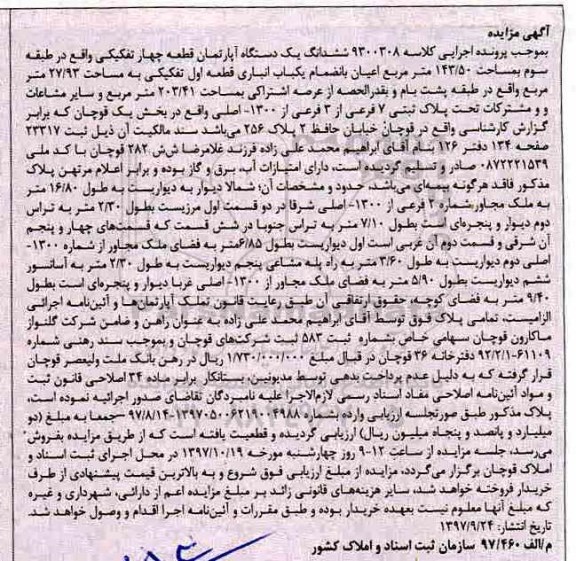 آگهی مزایده
بموجب پرونده اجرایی کلاسه ۹۳۰۰۳۰۸ ششدانگ یک دستگاه آپارتمان قطعه چهار تفکیکی واقع در طبقه
سوم بمساحت ۱۴۳/۵۰ متر مربع اعیان بانضمام یکباب انباری قطعه اول تفکیکی به مساحت ۲۷/۹۳ متر
مربع واقع در طبقه پشت بام و بقدرالحصه از عرصه اشتراکی بمساحت ۲۰۳/۴۱ متر مربع و سایر مشاعات
و و مشترکات تحت پلاک ثبتی ۷ فرعی از ۳ فرعی از ۱۳۰۰- اصلی واقع در بخش یک قوچان که برابر
گزارش کارشناسی واقع در قوچان خیابان حافظ ۲ پلاک ۲۵۶ می‌باشد سند مالکیت آن ذیل ثبت ۲۳۳۱۷
صفحه ۱۳۴ دفتر ۱۲۶ بنام آقای ابراهیم محمد علی زاده فرزند غلامرضا ش‌ش ۲۸۲ قوچان با کد ملی
۰۸۷۲۲۲۱۵۳۹ صادر و تسلیم گردیده است، دارای امتیازات آب، برق و گاز بوده و برابر اعلام مرتهن پلاک
مذکور فاقد هرگونه بیمه‌ای می‌باشد، حدود و مشخصات آن؛ شمالا دیوار به دیواریست به طول ۱۶/۸۰ متر
به ملک مجاور شماره ۲ فرعی از ۱۳۰۰- اصلی شرقا در دو قسمت اول مرزیست بطول ۲/۳۰ متر به تراس
دوم دیوار و پنجره‌ای است بطول ۷/۱۰ متر به تراس جنوبا در شش قسمت که قسمت‌های چهار و پنجم
آن شرقی و قسمت دوم آن غربی است اول دیواریست بطول ۶/۸۵متر به فضای ملک مجاور از شماره ۱۳۰۰-
اصلی دوم دیواریست به طول ۳/۶۰ متر به راه پله مشاعی پنجم دیواریست به طول ۲/۳۰ متر به آسانسور
ششم دیواریست بطول ۵/۹۰ متر به فضای ملک مجاور از ۱۳۰۰- اصلی غربا دیوار و پنجره‌ای است بطول
۹/۴۰ متر به فضای کوچه، حقوق ارتفاقی آن طبق رعایت قانون تملک آپارتمان‌ها و آئین‌نامه اجرائی
الزامیست، تمامی پلاک فوق توسط آقای ابراهیم محمد علی زاده به عنوان راهن و ضامن شرکت گلنواز
ماکارون قوچان سهامی خاص بشماره ثبت ۵۸۳ ثبت شرکت‌های قوچان و بموجب سند رهنی شماره
۶۱۱۰۹-۹۲/۲/۱ دفترخانه ۳۶ قوچان در قبال مبلغ ۱/۷۳۰/۰۰۰/۰۰۰ ریال در رهن بانک ملت ولیعصر قوچان
قرار گرفته که به دلیل عدم پرداخت بدهی توسط مدیونین، بستانکار برابر ماده ۳۴ اصلاحی قانون ثبت
و مواد آئین‌نامه اصلاحی مفاد اسناد رسمی لازم‌الاجرا علیه نامبردگان تقاضای صدور اجرائیه نموده است،
پلاک مذکور طبق صورتجلسه ارزیابی وارده بشماره ۱۳۹۷۰۵۰۰۶۲۱۹۰۰۴۹۸۸-۹۷/۸/۱۴ جمعا به مبلغ (دو
میلیارد و پانصد و پنجاه میلیون ریال) ارزیابی گردیده و قطعیت یافته است که از طریق مزایده بفروش
می‌رسد، جلسه مزایده از ساعت ۱۲-۹ روز چهارشنبه مورخه ۱۳۹۷/۱۰/۱۹ در محل اجرای ثبت اسناد و
املاک قوچان برگزار می‌گردد، مزایده از مبلغ ارزیابی فوق شروع و به بالاترین قیمت پیشنهادی از طرف
خریدار فروخته خواهد شد، سایر هزینه‌های قانونی زائد بر مبلغ مزایده اعم از دارائی، شهرداری و غیره
که مبلغ آنها معلوم نیست بعهده خریدار بوده و طبق مقررات و آئین‌نامه اجرا اقدام و وصول خواهد شد.
تاریخ انتشار: ۱۳۹۷/۹/۲۴
م/الف ۹۷/۴۶۰ سازمان ثبت اسناد و املاک کشور